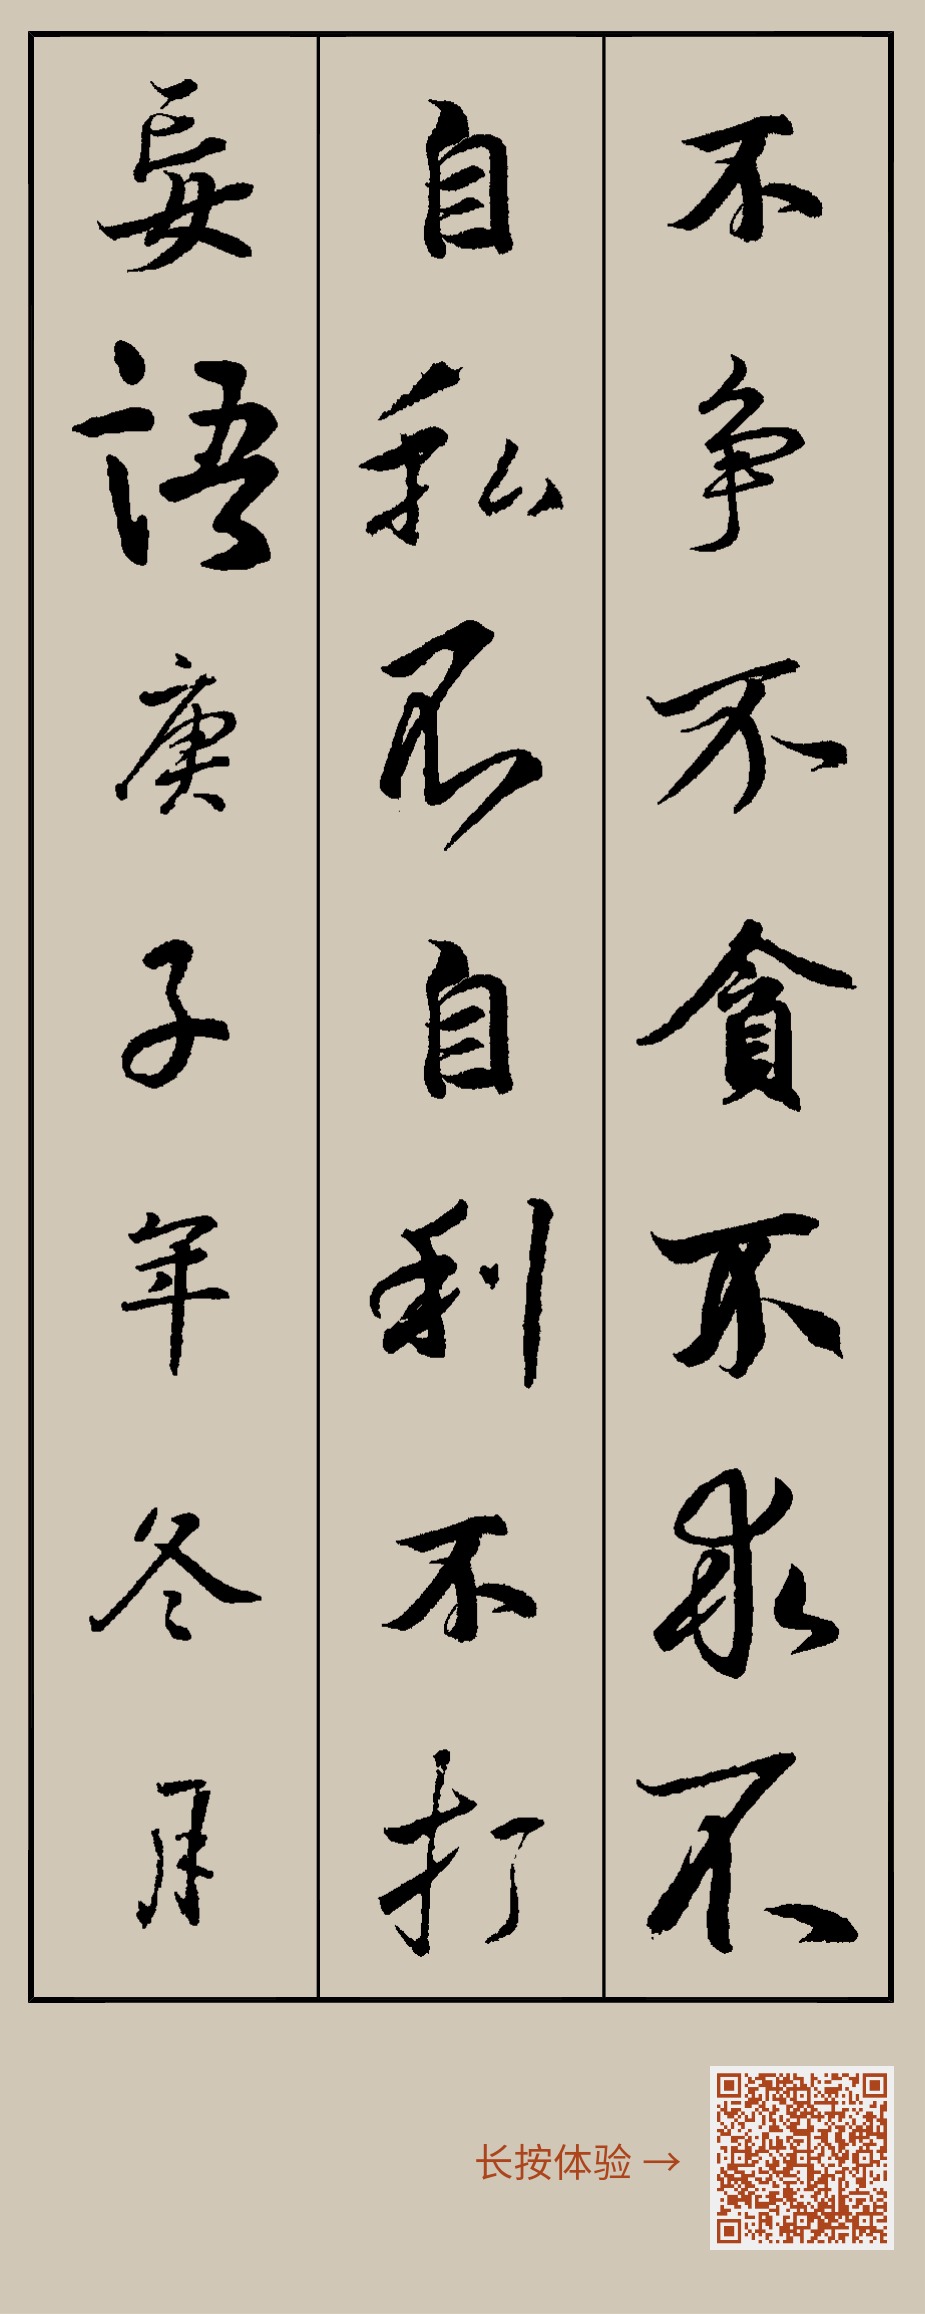 不争不貪不求不
自私不自利不打
妄語庚子年冬月
长按体验→